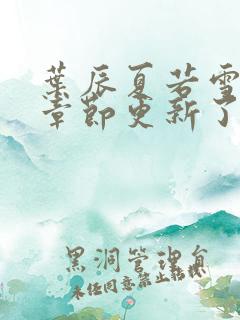 葉辰夏若雪
章節更新了
黑洞管理員
未經同意禁止轉載